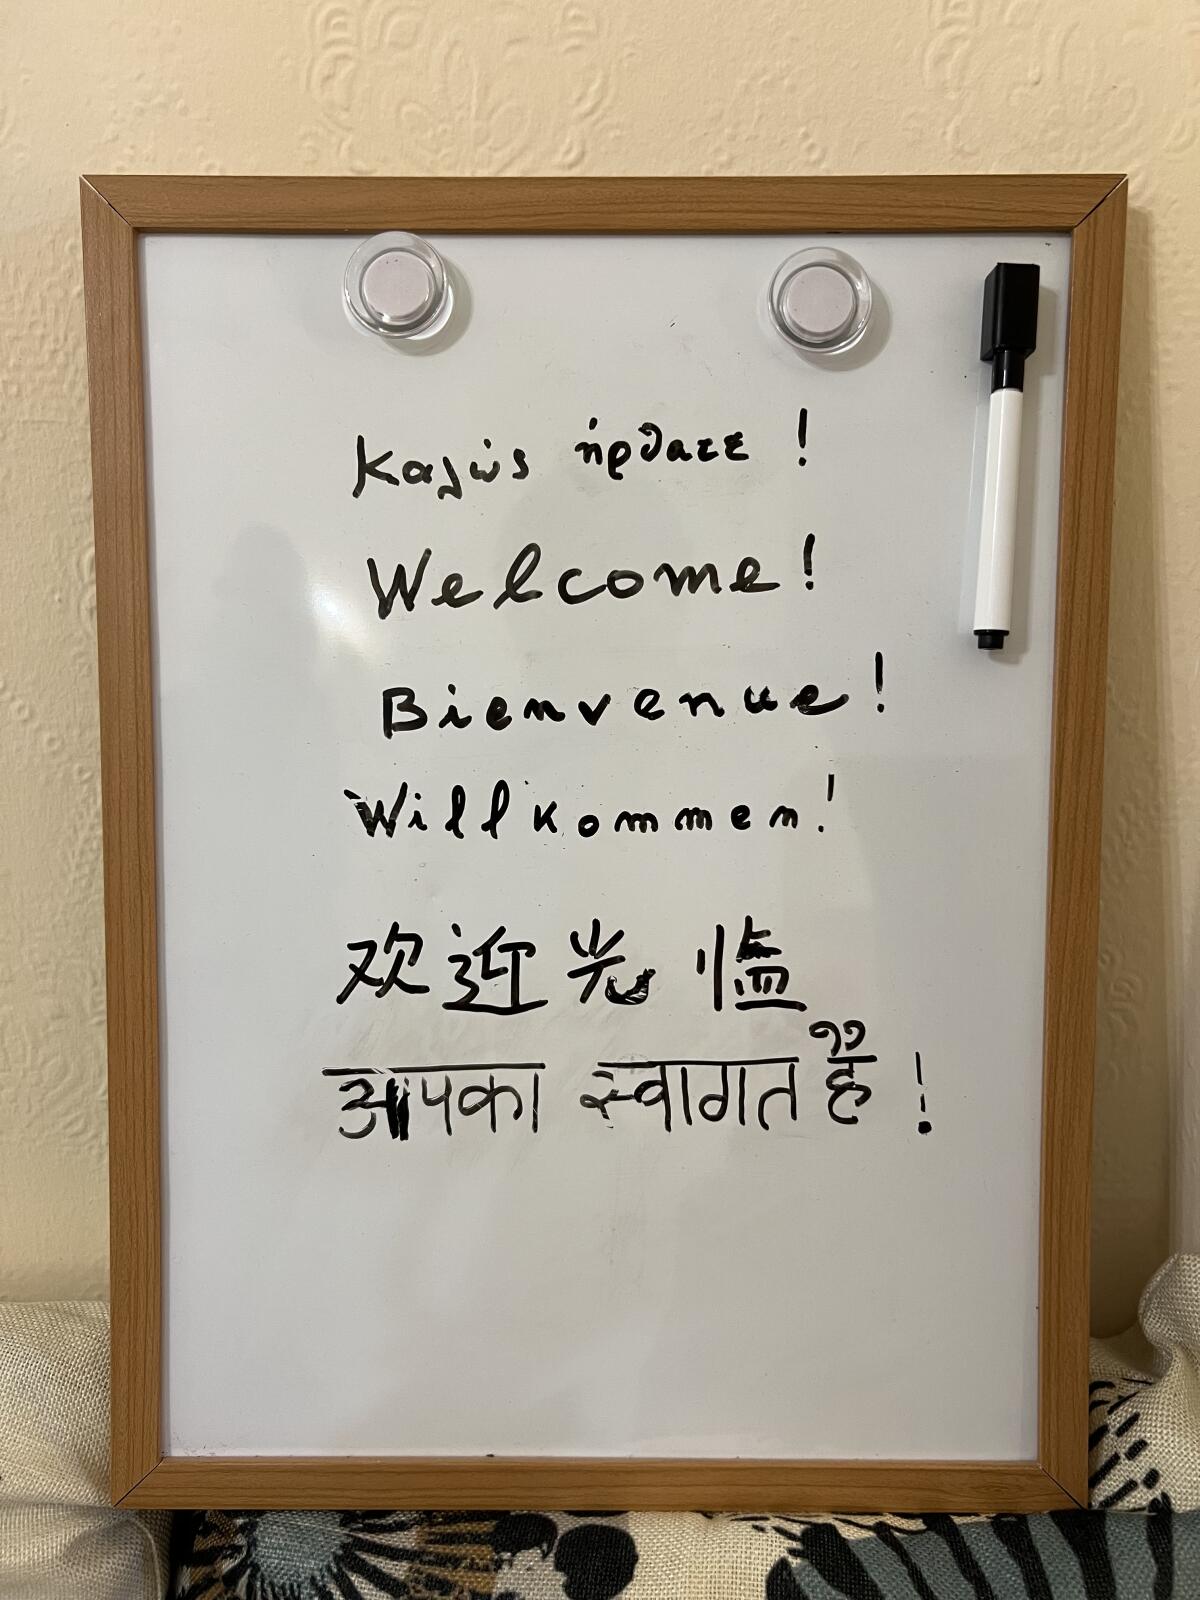 Καλώς ήρθατε !
Welcome!
Bienvenue!
Willkommen!
欢迎光临
आपका स्वागत है !